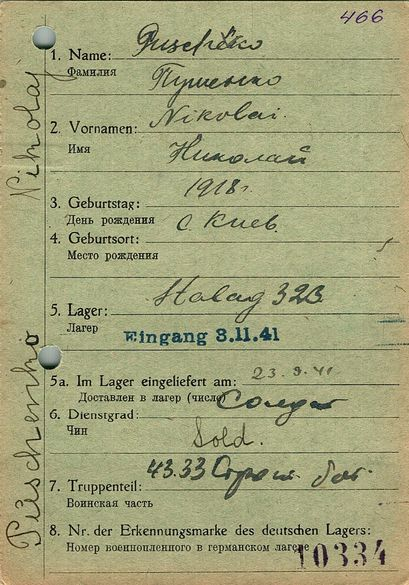 466
1. Name: Puschėko
Фамилия Пушенко
2. Vornamen: Nikolai.
Имя Николай
3. Geburtstag: 1918 г
День рождения с. Киев.
4. Geburtsort:
Место рождения
5. Lager: Stalag 32B
Лагер
Eingang 3.11.41
5a. Im Lager eingeliefert am: 23.9.41
Доставлен в лагер (число)
6. Dienstgrad: Солдат
Чин Sold.
7. Truppenteil: 4333 Строит. бат.
Воинская часть
8. Nr. der Erkennungsmarke des deutschen Lagers:
Номер военнопленного в германском лагере 10334
Püschenko Nikolaj